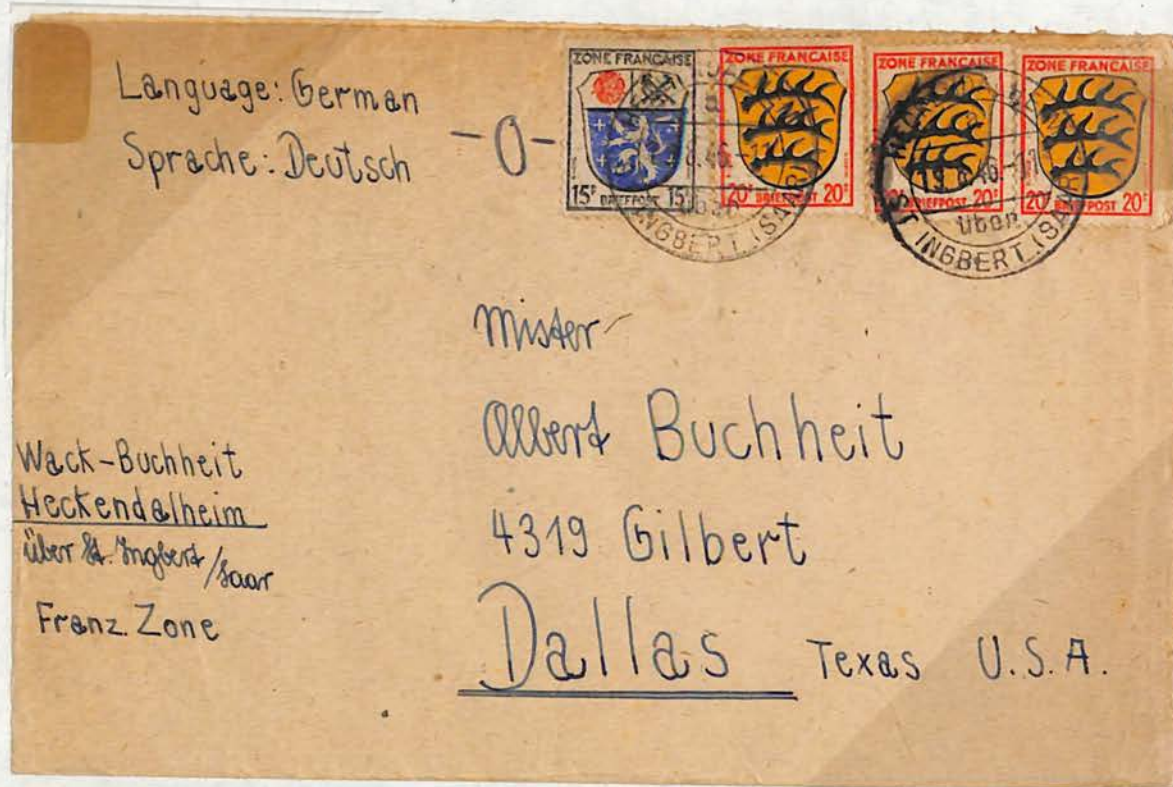 Language: German
Sprache: Deutsch
-0-
ZONE FRANCAISE
15F BRIEFPOST 15F
ZONE FRANCAISE
20F BRIEFPOST 20F
ZONE FRANCAISE
BRIEFPOST 20F
ZONE FRANCAISE
20F BRIEFPOST 20F
über
INGBERT (SAAR)
über
ST INGBERT (SAAR)
Mister
Albert Buchheit
4319 Gilbert
Dallas Texas U.S.A.
Wack-Buchheit
Heckendalheim
über St. Ingbert/Saar
Franz. Zone